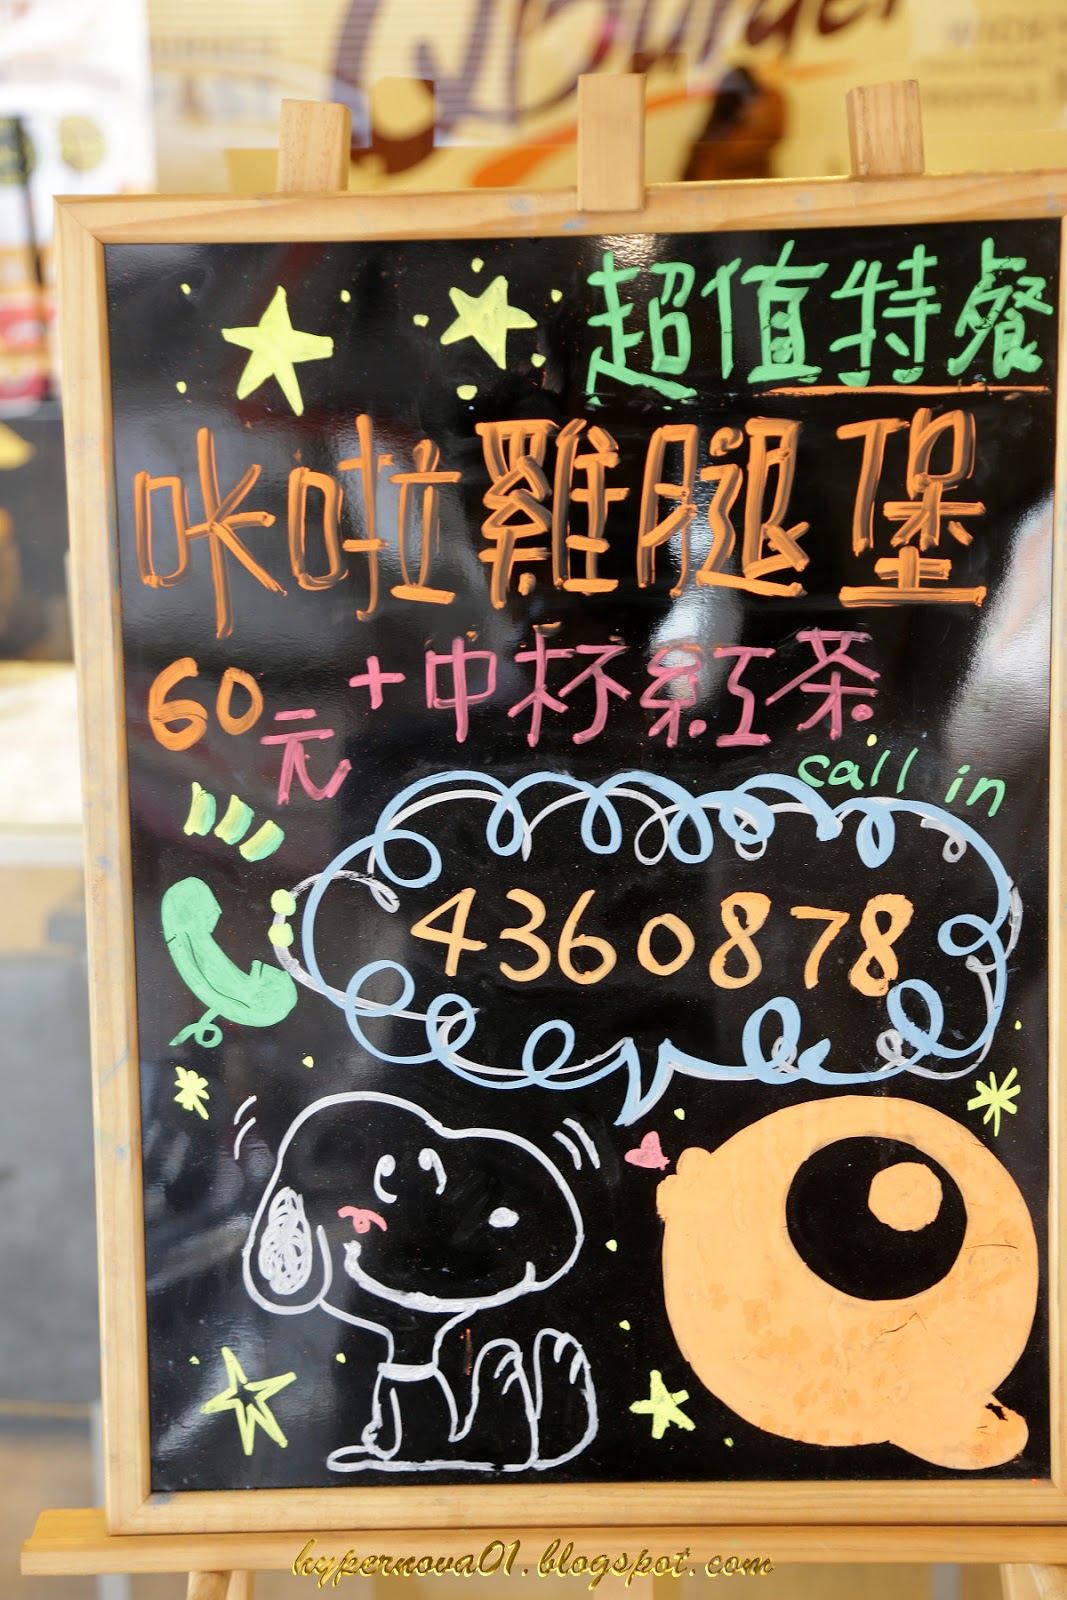 Burger
超值特餐
咔啦雞腿堡
60元+中杯紅茶
call in
4360878
hypernova01.blogspot.com